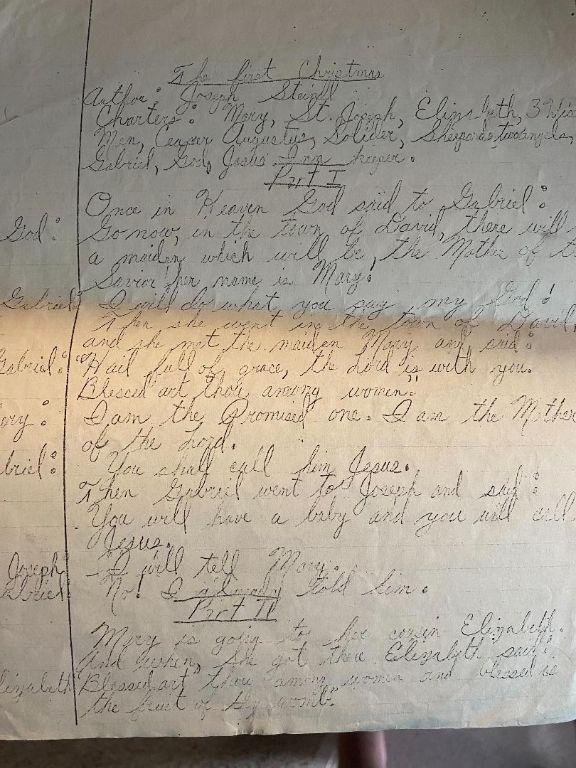 The first Christmas
Author: Joseph
Charters: Mary, St. Joseph, Elizabeth, 3 Wise
Men, Ceaser Augustus, Solider, Sheperds two angels,
Gabriel, God, Jesus Inn keeper.
Part I
Once in Heaven God said to Gabriel:
God: Go now, in the town of David, there will
a maiden which will be, the Mother of
Savior her name is Mary.
Gabriel I will do what you say my God!
Then she went in the town of David
and she met the maiden Mary and said:
Gabriel: "Hail full of grace, the Lord is with you.
Blessed art thou among women."
ary: I am the Promised one. I am the Mother
of the Lord.
briel: You shall call him Jesus.
Then Gabriel went to Joseph and said:
You will have a baby and you will call
Jesus.
Joseph I will tell Mary.
abriel No! I already told him.
Part II
Mary is going to her cousin Elizabeth.
And when, she got there Elizabeth said:
Elizabeth "Blessed art thou among women and blessed is
the fruit of thy womb."